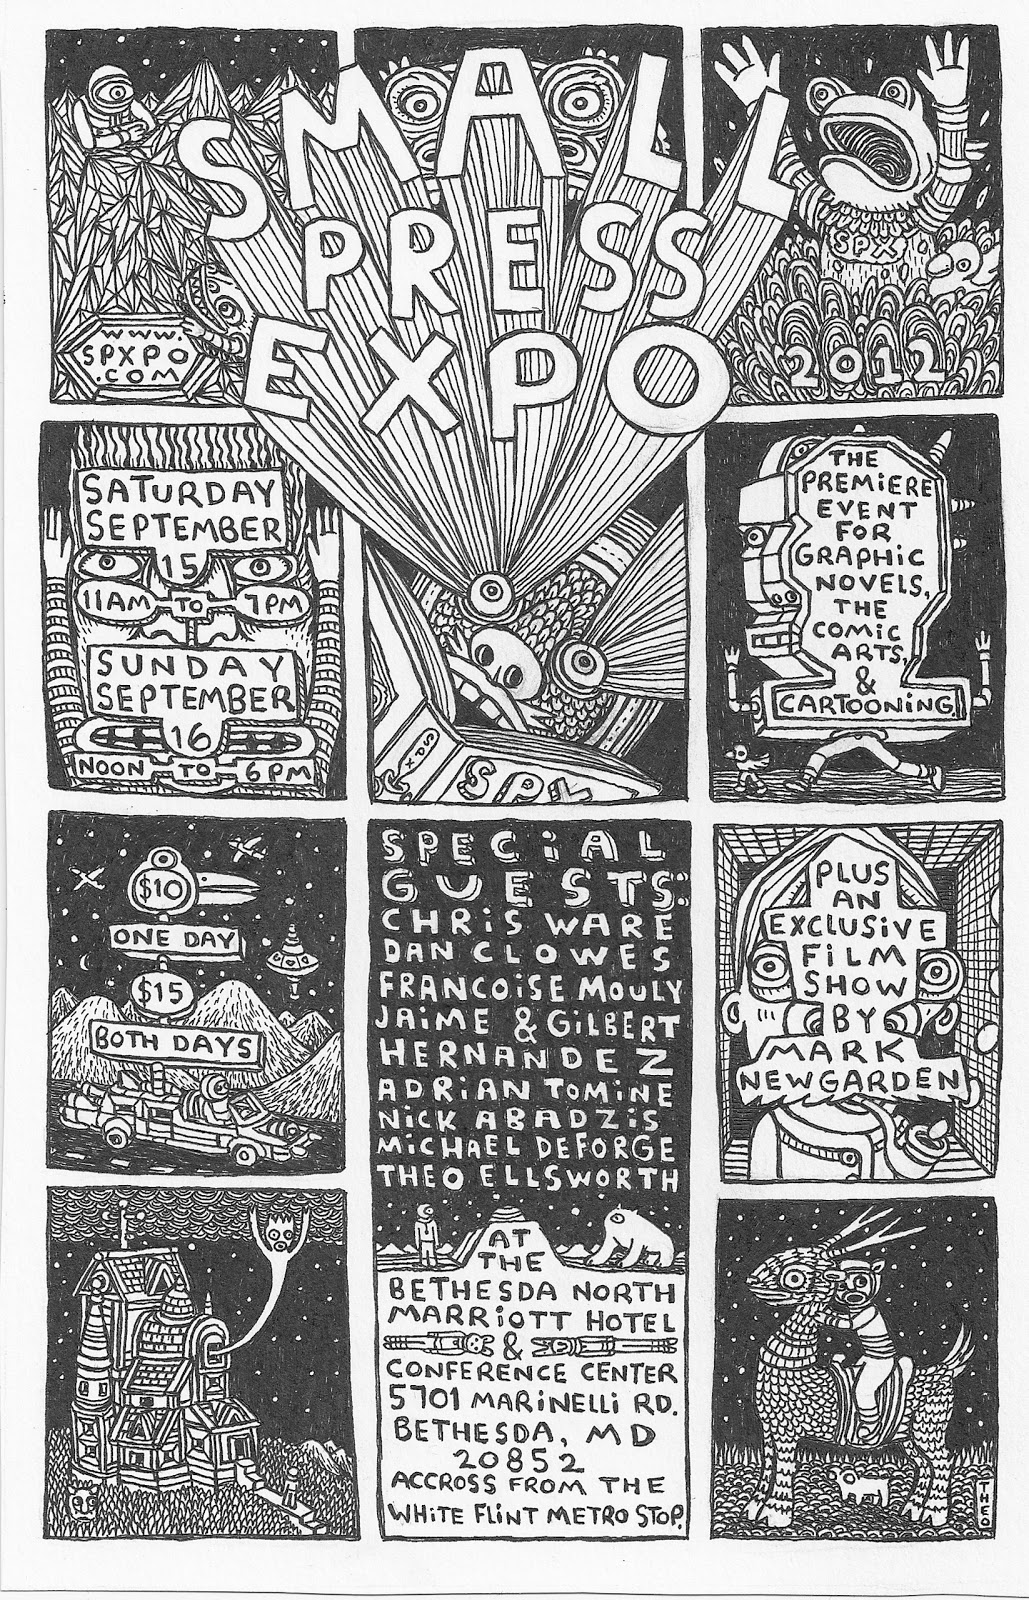 SMALL
PRESS
EXPO
WWW.
SPXPO
.COM
SPX
2012
SATURDAY
SEPTEMBER
15
11AM TO 7PM
SUNDAY
SEPTEMBER
16
NOON TO 6PM
SPX
THE
PREMIERE
EVENT
FOR
GRAPHIC
NOVELS,
THE
COMIC
ARTS,
&
CARTOONING.
$10
ONE DAY
$15
BOTH DAYS
SPECIAL
GUESTS:
CHRIS WARE
DAN CLOWES
FRANCOISE MOULY
JAIME & GILBERT
HERNANDEZ
ADRIAN TOMINE
NICK ABADZIS
MICHAEL DEFORGE
THEO ELLSWORTH
AT
THE
BETHESDA NORTH
MARRIOTT HOTEL
&
CONFERENCE CENTER
5701 MARINELLI RD.
BETHESDA, MD
20852
ACCROSS FROM THE
WHITE FLINT METRO STOP.
PLUS
AN
EXCLUSIVE
FILM
SHOW
BY
MARK
NEWGARDEN
THEO